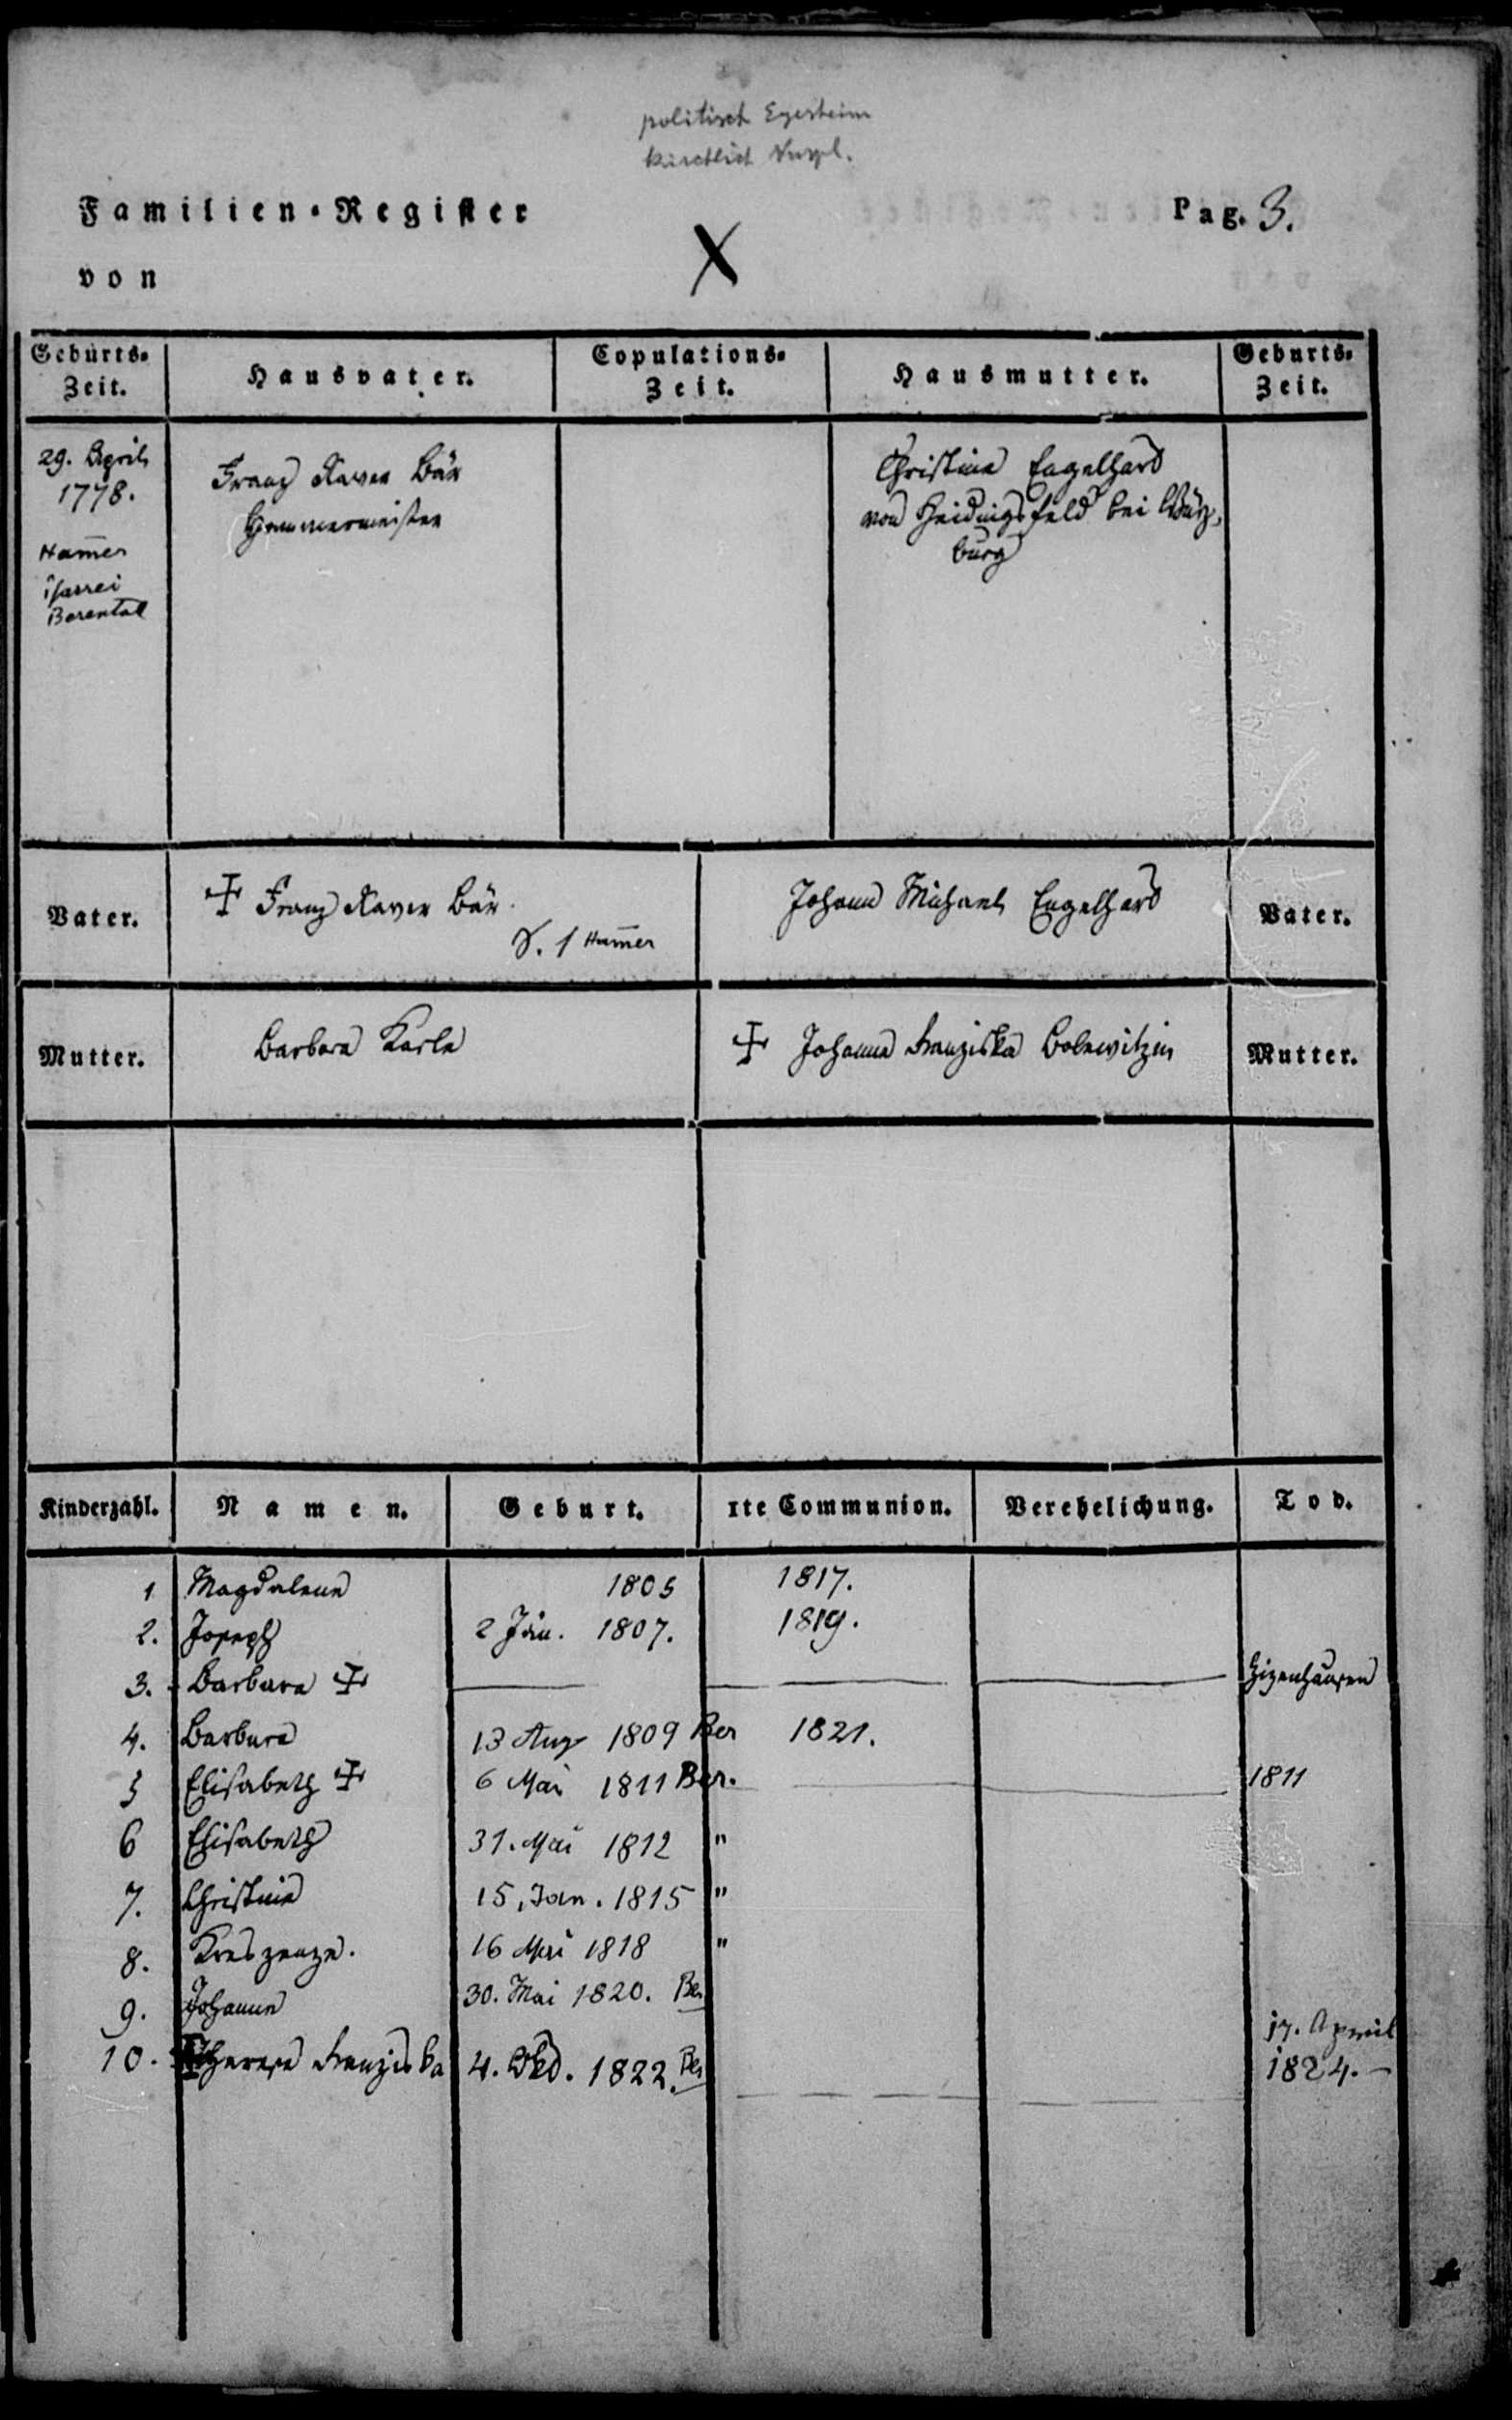 politisch Egesheim
kirchlich Nuspl.
Familien-Register
Pag. 3.
von
X
Geburts-Zeit. Hausvater. Copulations-Zeit. Hausmutter. Geburts-Zeit.
29. April
1778.
Ham̅er
Pfarrei
Bärental
Franz Xaver Bär
Hammermeister
Christina Engelhard
von Heidingsfeld bei Würz-
burg
Vater. ✝ Franz Xaver Bär. Johann Michael Engelhard Vater.
S. 1 Ham̅er
Mutter. Barbara Karle ✝ Johanna Franziska Mutter.
Kinderzahl. Namen. Geburt. 1te Communion. Verehelichung. Tod.
1 Magdalena 1805 1817.
2. Joseph 2 Jän. 1807. 1819.
3. Barbara ✝ Zizenhausen
4. Barbara 13 Aug 1809 Ber 1821.
5 Elisabeth ✝ 6 Mai 1811 Ber. 1811
6 Elisabeth 31. Mai 1812 "
7. Christina 15. Jan. 1815 "
8. Kreszenze. 16 Mai 1818 "
9. Johanna 30. Mai 1820. Ber
10. Theresa Franziska 4. 1822. Ber 17. April
1824.